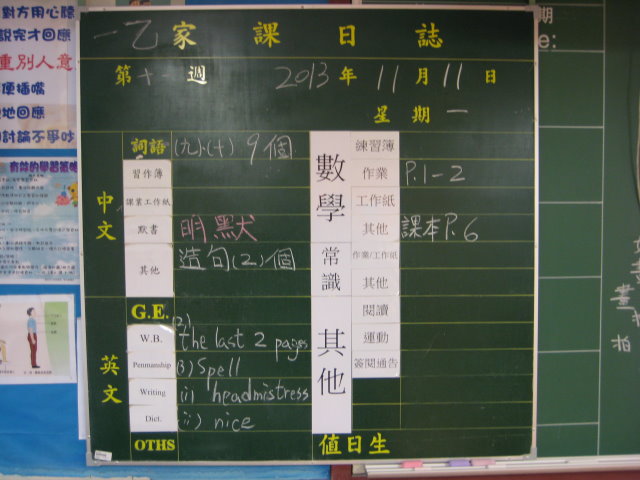 對方用心聽
說完才回應
重別人意
便插嘴
地回應
討論不爭吵
一乙家課日誌
第十一週 2013年11月11日
星期一
中文
詞語 (九)、(十) 9個
習作簿
課業工作紙
默書 明默
其他 造句(2)個
英文
G.E. (2)
W.B. the last 2 pages
Penmanship (3) Spell
Writing (i) headmistress
Dict. (ii) nice
OTHS
數學
練習簿
作業 P.1-2
工作紙
其他 課本P.6
常識
作業/工作紙
其他
其他
閱讀
運動
簽閱通告
值日生
期
e:
拍